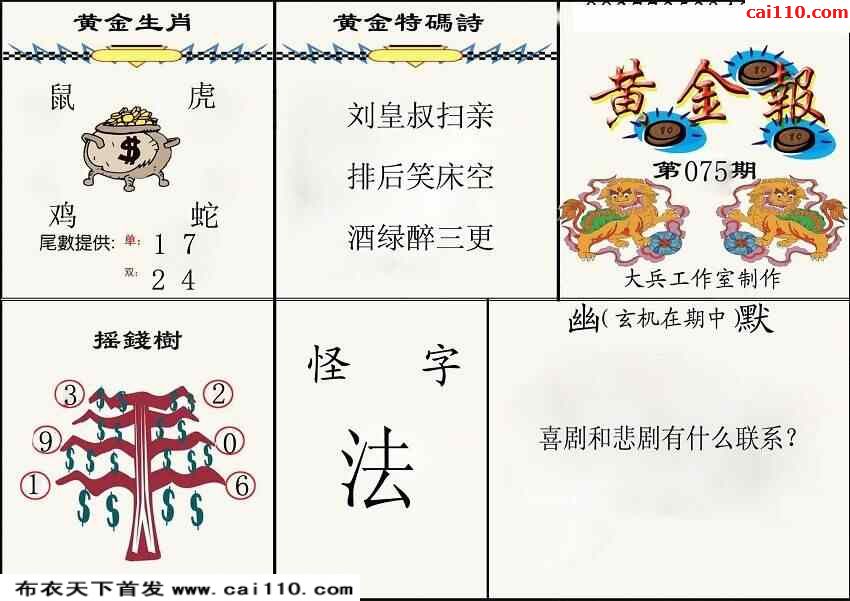 黄金生肖
鼠 虎
$
鸡 蛇
尾數提供: 单: 1 7
双: 2 4
黄金特碼詩
刘皇叔扫亲
排后笑床空
酒绿醉三更
cai110.com
黄金報
第075期
大兵工作室制作
摇錢樹
3 2
9 0
1 6
怪 字
法
幽(玄机在期中)默
喜剧和悲剧有什么联系?
布衣天下首发 www.cai110.com